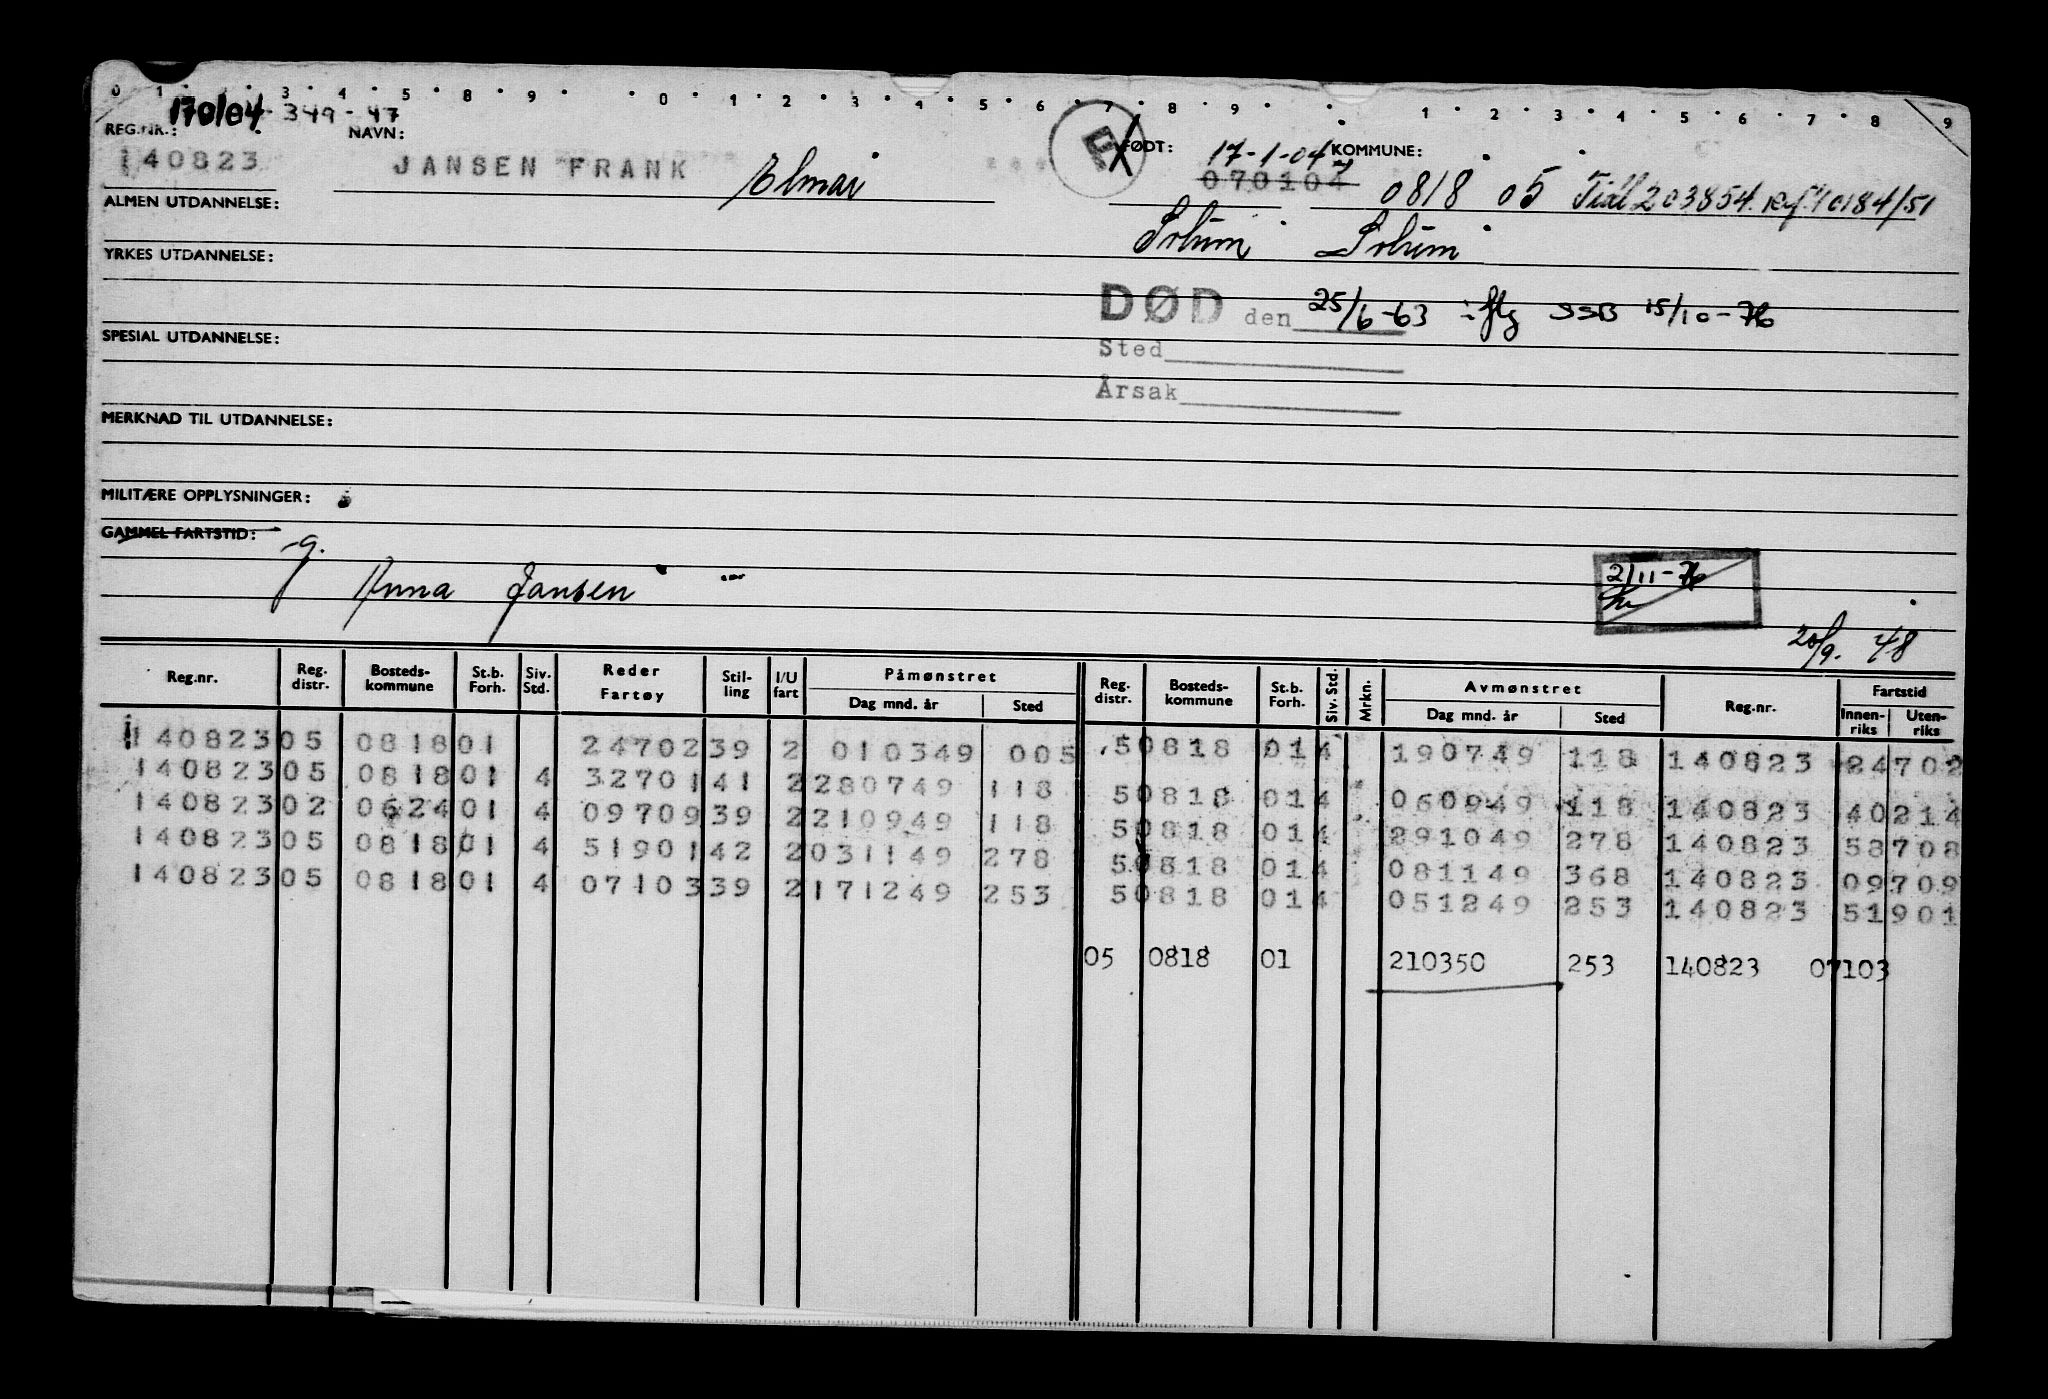 0 1 3 4 5 8 9 0 1 2 3 4 5 6 7 8 9 1 2 3 4 5 6 7 8 9
170104 - 349 - 47
REG.NR.: NAVN: FØDT: 17-1-04 KOMMUNE:
140823 JANSEN FRANK Elmar 070104 0818 05 Tidl 203854. Ref 10184/51
ALMEN UTDANNELSE: Solum Solum
YRKES UTDANNELSE:
DØD den 25/6-63 iflg SSB 15/10-76
SPESIAL UTDANNELSE: Sted
Årsak
MERKNAD TIL UTDANNELSE:
MILITÆRE OPPLYSNINGER:
GAMMEL FARTSTID:
g. Anna Jansen
2/11-76
20/9. 48
Reg.nr. Reg. distr. Bosteds-kommune St.b. Forh. Siv. Std. Reder Fartøy Stil-ling I/U fart Påmønstret Dag mnd. år Sted Reg. distr. Bosteds-kommune St.b. Forh. Siv. Std. Mrkn. Avmønstret Dag mnd. år Sted Reg.nr. Fartstid Innen-riks Uten-riks
140823 05 0818 01 24702 39 2 010349 005 5 0818 01 4 190749 118 140823 24702
140823 05 0818 01 4 32701 41 2 280749 118 5 0818 01 4 060949 118 140823 40214
140823 02 0624 01 4 09709 39 2 210949 118 5 0818 01 4 291049 278 140823 58708
140823 05 0818 01 4 51901 42 2 031149 278 5 0818 01 4 081149 368 140823 09709
140823 05 0818 01 4 07103 39 2 171249 253 5 0818 01 4 051249 253 140823 51901
05 0818 01 210350 253 140823 07103